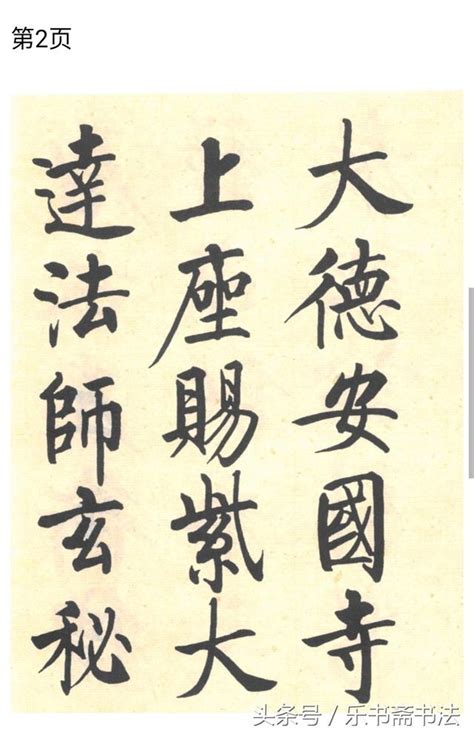 第2页
大德安國寺
上座賜紫大
達法師玄秘
头条号/乐书斋书法